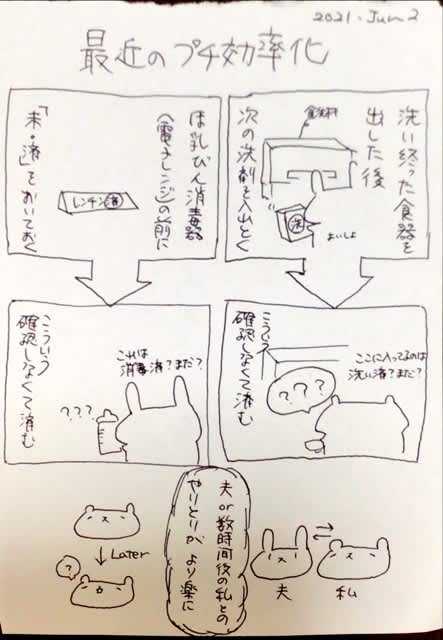 2021. Jun 2
最近のプチ効率化
洗い終った食器を
出した後
次の洗剤を入れとく
食洗機
洗
よいしょ
ほ乳びん消毒器
(電子レンジ)の前に
「未・済」をおいておく
レンチン済
こういう
確認しなくて済む
ここに入ってるのは
洗い済?まだ?
???
こういう
確認しなくて済む
これは
消毒済?まだ?
???
夫or数時間後の私との
やりとりが より楽に
夫
私
Later
?